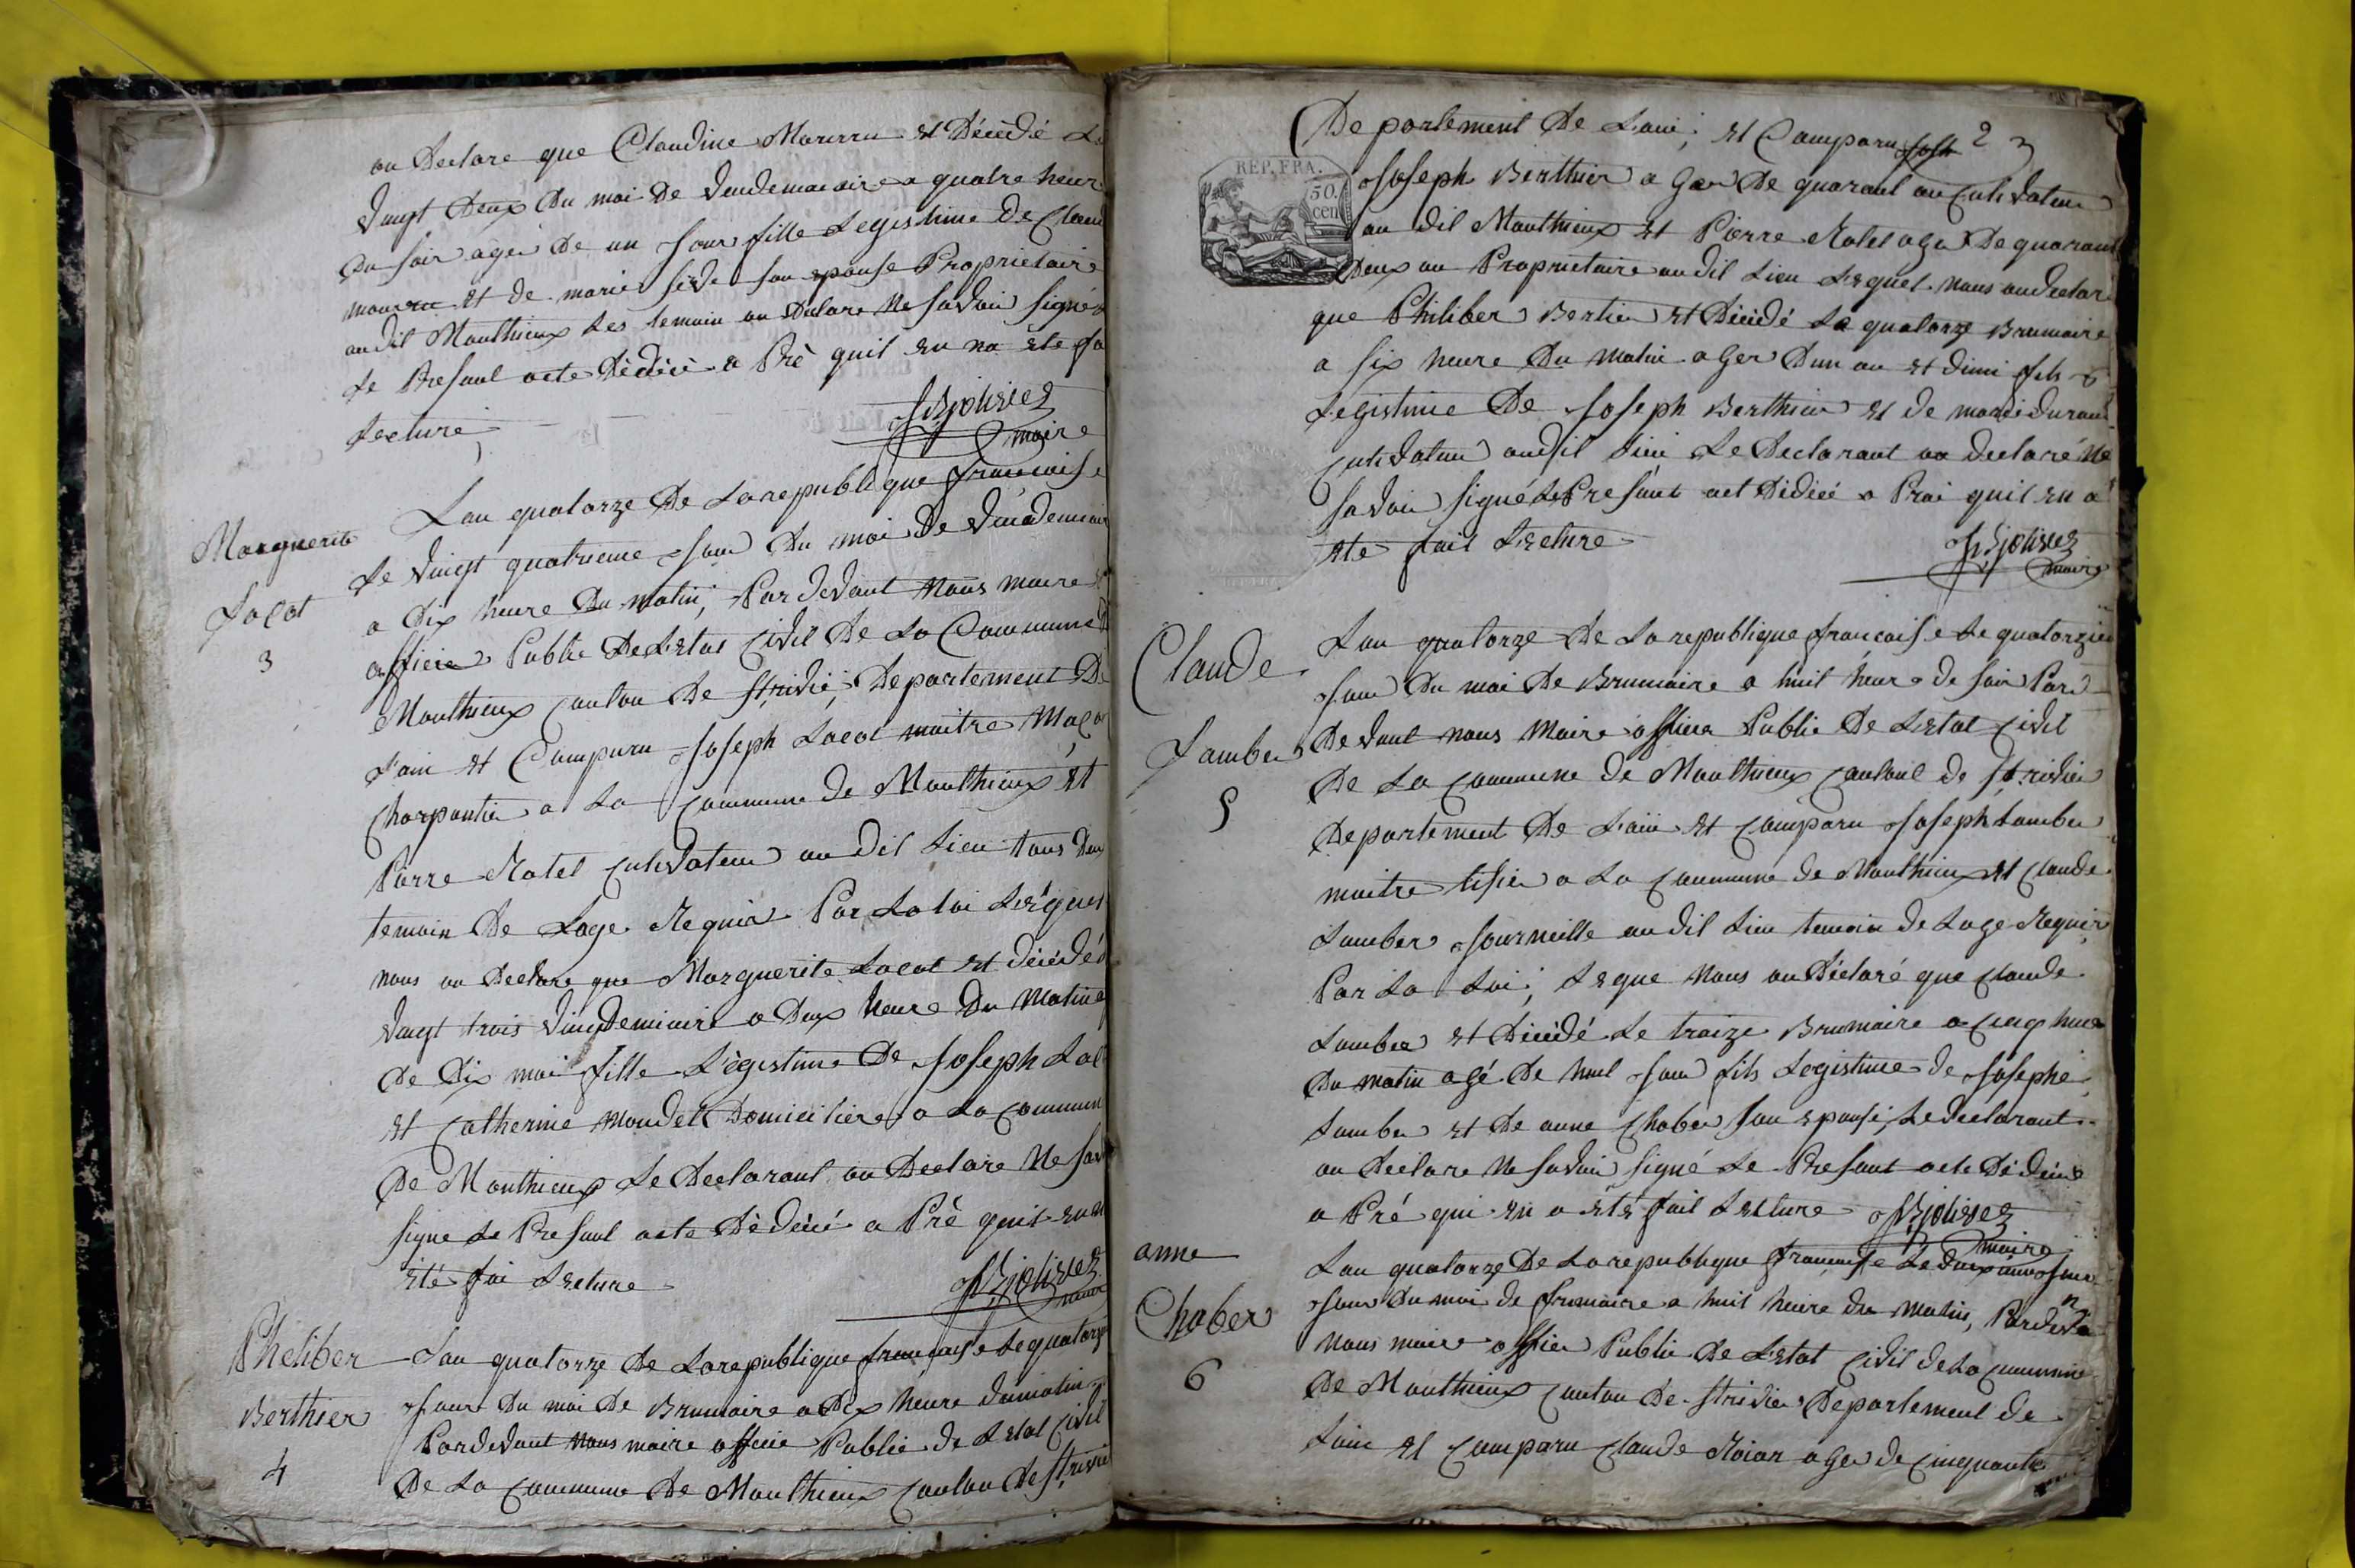 on Declare que Claudine Mourru et Décédé Le
vingt Deux Du moi De Vendemiaire a quatre heure
Du soir agée De un jour fille Legistime De Claud
mourru et de marie side son epouse Proprietaire
audit Monthieux Les temoin on Declare Ne savoir signé
Le Present acte Dédicé a Pré quil en na ete fa
Lecture
JB jolivez
maire
Marguerite
Lacot
3
Lan quatorze De La republique francaise
Le vingt quatrieme jour Du moi De Vindemiair
a Dix heure Du matin, Par devant Nous maire
officier Public De Letat Civil De La Commune D
Monthieux Canton De St trivié, Departement De
L'ain et Comparu Joseph Lacot maitre Maçon
Charpantier a La Commune de Monthieux et
Pierre Rotel Cultivateur au dit Lieu tous Deux
temoin De Lage Requir Par La loi Lesquel
nous on Declare que Marguerite Lacot et décédé
vingt trois Vindemiaire a Deux heure Du Matin ag
De Dix moi fille Légistime De Joseph Lac
et Catherine Moudet Domicilière a La Commun
De Monthieux Le Declarant on Declare Ne sav
signe Le Present acte Dédicé a Pré quil en a
été fai Lecture
JB jolivez
maire
Pheliber
Berthier
4
Lan quatorze De La republique francaise Le quatorz
jour Du moi De Brumaire a Dix heure Du matin
Pardevant Nous maire officie Public De Letat Civil
De La Commune De Monthieux Canton De St trivié
2 3
REP. FRA.
50.
cen
Departement De L'ain; et Comparu Josh
Joseph Berthier a Ger De quarant an Cultivateur
au dit Monthieux et Pierre Rotel age De quarant
Deux an Proprietaire audit Lieu Lesquel nous on declar
que Philiber Bertier et Décédé Le quatorze Brumaire
a six heure Du matin a Ger Dun an et dimi fils
Legistime De Joseph Berthier et de marie durand
Cultivateur audit Lieu Le Declarant on declaré Ne
savoir signé Le Present act Dédicé a Prai quil en a
ete fait Lecture
JB jolivez
maire
Claude
Lamber
5
Lan quatorze De La republique francaise Le quatorzie
jour Du moi De Brumaire a huit heure de soir Par
Devant nous Maire officier Public De Letat Civil
De La Commune De Monthieux Cantout de St trivier
Departement De L'ain et Comparu Joseph Lamber
maitre tisier a La Commune de Monthieux et Claude
Lamber journeille au dit Lieu temoin de Lage Requir
Par La Loi; Leque Nous on Déclaré que Claude
Lamber et Décédé Le traize Brumaire a Cinq heure
Du matin agé De huit jour fils Legistime de Josephe
Lamber et De anne Chaber son epouse; Le declarant
on declare Ne savoir signé Le Present acte Dédicié
a Pré qui en a été fait Lecture
JB jolivez
maire
anne
Chaber
6
Lan quatorze De La republique francaise Le deuxieme jour
jour Du moi de frimaire a huit heure du matin, Pardevan
Nous maire officier Public De Letat Civil de La Commune
De Monthieux Canton De St trivier Departement de
L'ain et Comparu Claude Roiar a Ger de Cinquante